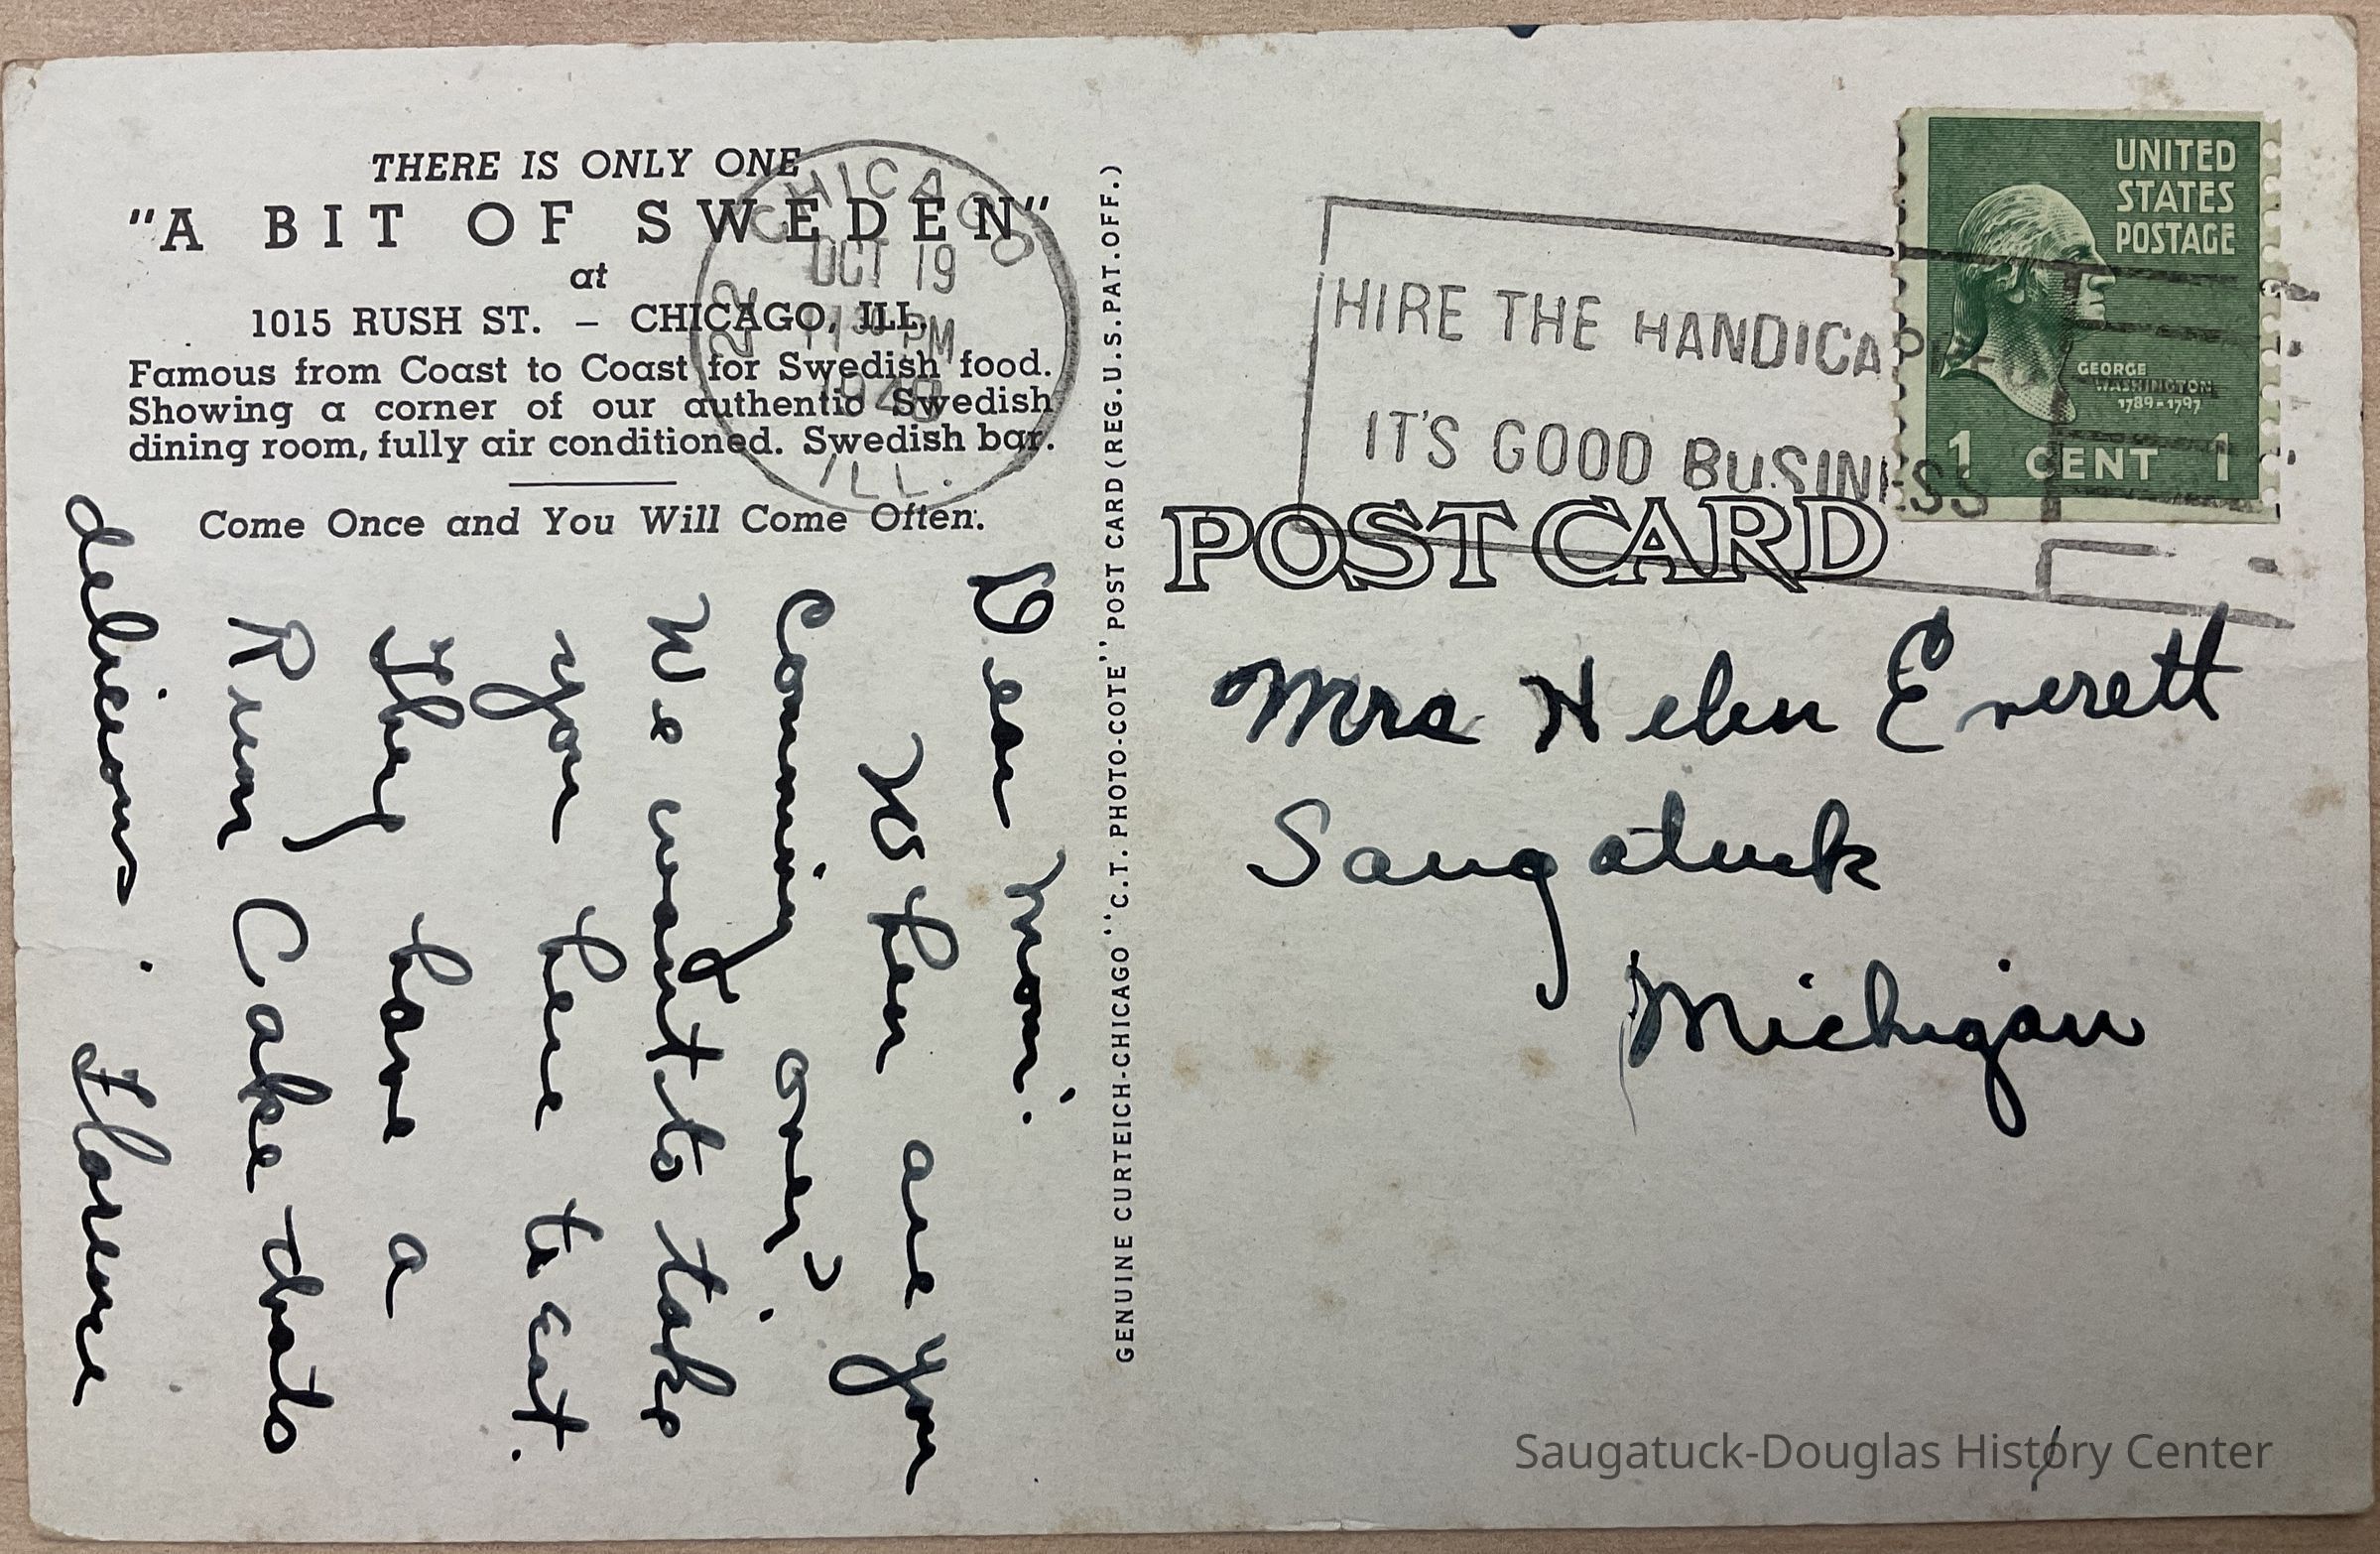 THERE IS ONLY ONE
"A BIT OF SWEDEN"
at
1015 RUSH ST. – CHICAGO, ILL.
Famous from Coast to Coast for Swedish food.
Showing a corner of our authentic Swedish
dining room, fully air conditioned. Swedish bar.
Come Once and You Will Come Often.
CHICAGO
OCT 19
11 30 PM
1948
ILL.
222
Dear Mom:
When are you
Coming over?
We want to take
you here to eat.
They have a
Rum Cake thats
delicious. Florence
GENUINE CURTEICH-CHICAGO "C.T. PHOTO-COTE" POST CARD (REG.U.S.PAT.OFF.)
HIRE THE HANDICAPPED
IT'S GOOD BUSINESS
UNITED
STATES
POSTAGE
GEORGE
WASHINGTON
1789-1797
1 CENT 1
POST CARD
Mrs Helen Everett
Saugatuck
Michigan
Saugatuck-Douglas History Center